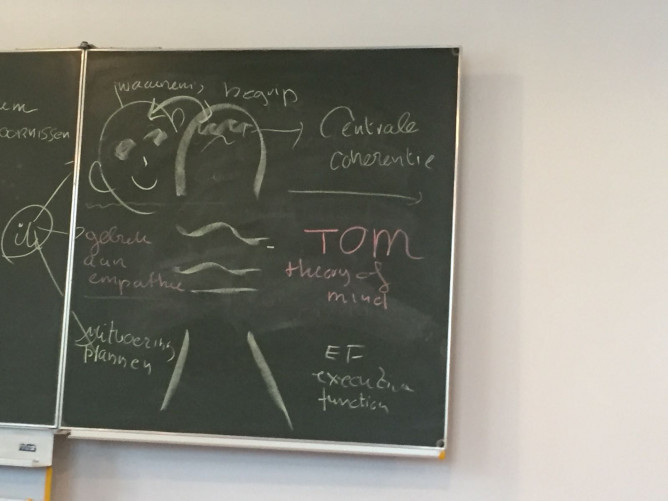 stoornissen
begrip
Centrale
coherentie
ik
gebrek
aan
empathie
TOM
theory of
mind
uitvoering
plannen
EF
executive
function